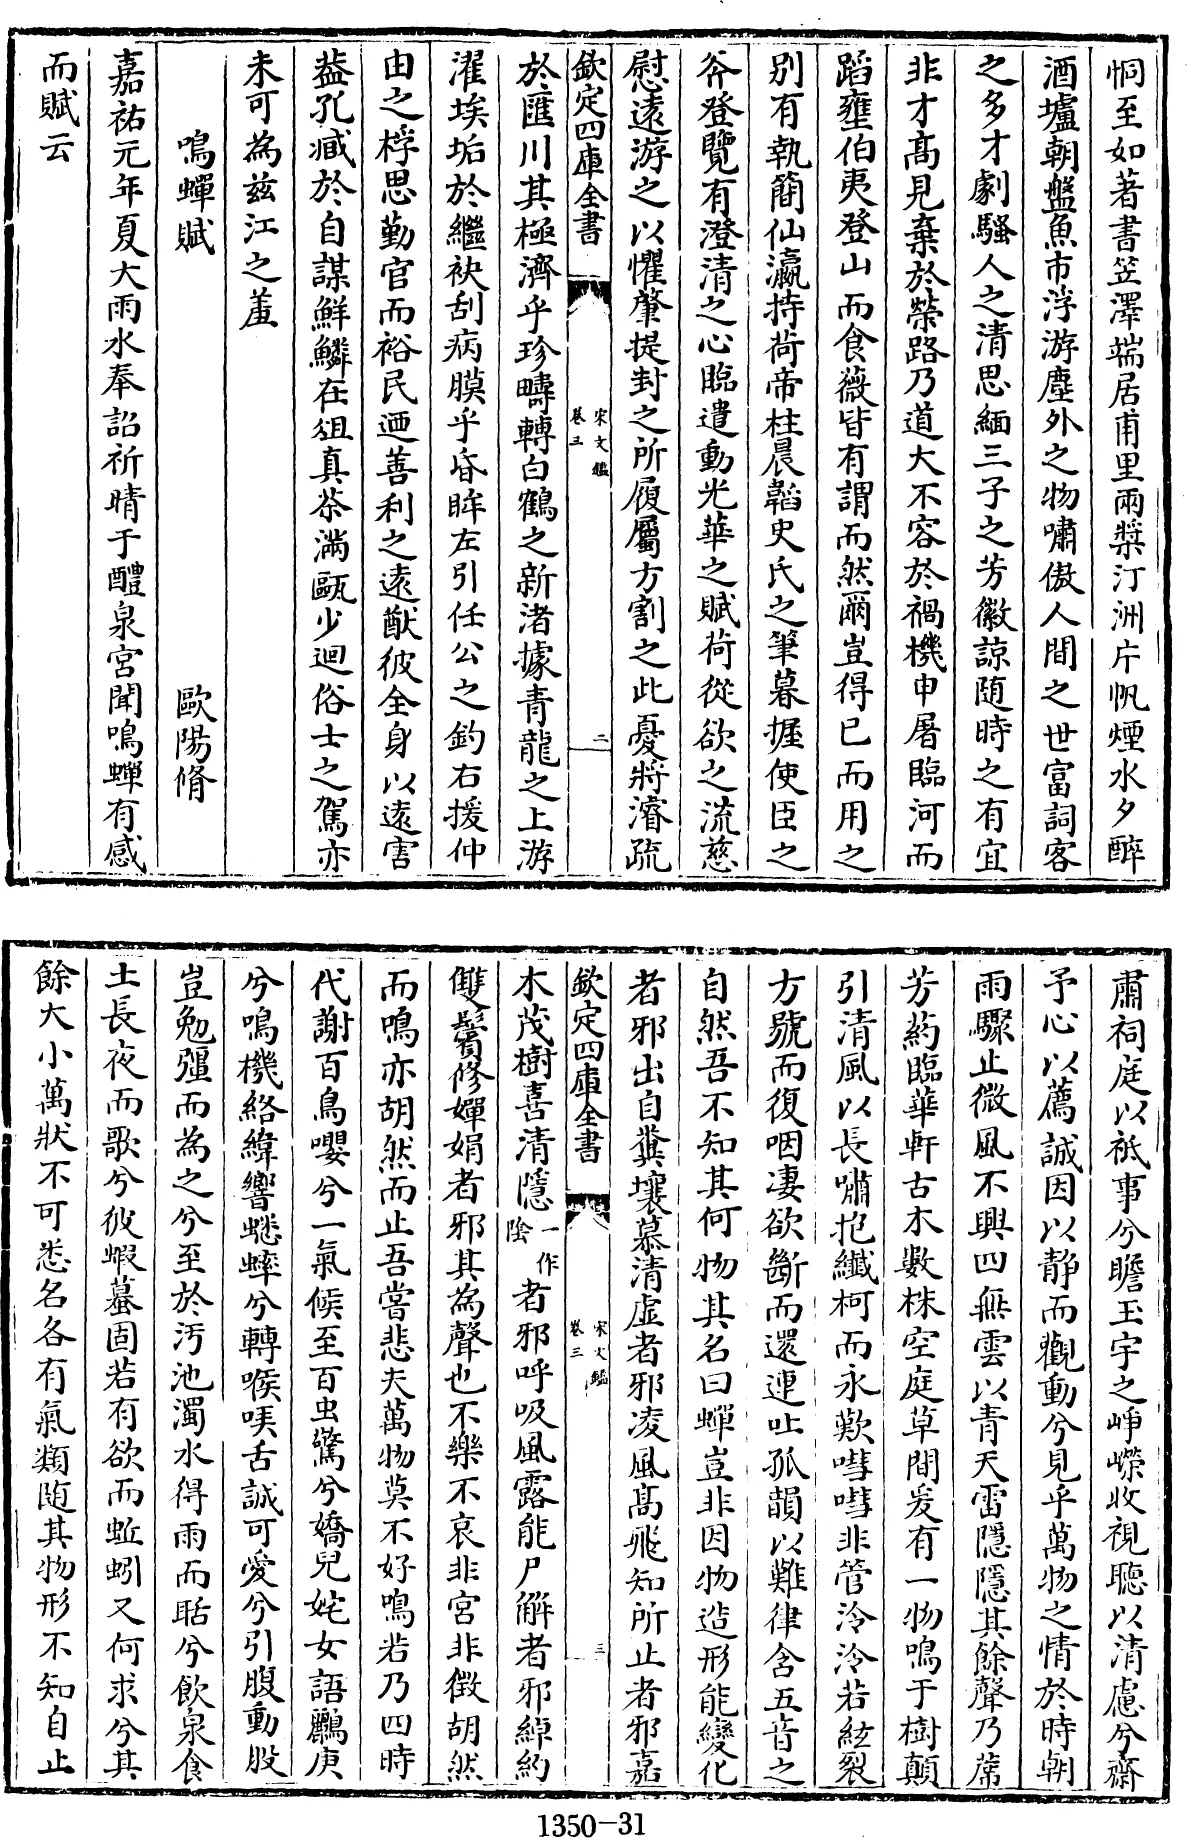 恫至如著書笠澤端居甫里兩槳汀洲片帆煙水夕醉
酒壚朝盤魚市浮游塵外之物嘯傲人間之世富詞客
之多才劇騷人之清思緬三子之芳徽諒随時之有宜
非才髙見棄於榮路乃道大不容於禍機申屠臨河而
蹈壅伯夷登山而食薇皆有謂而然爾豈得已而用之
别有執簡仙瀛持荷帝柱晨韜史氏之筆暮握使臣之
斧登覽有澄清之心臨遣動光華之賦荷從欲之流慈
慰逺游之以懼肇提封之所履屬方割之此憂將濬疏
欽定四庫全書
宋文鑑
卷三
二
於匯川其極濟乎珍疇轉白鶴之新渚據青龍之上游
濯埃垢於繼袂刮病膜乎昏眸左引任公之釣右援仲
由之桴思勤官而裕民迺善利之逺猷彼全身以逺害
葢孔臧於自謀鮮鱗在俎真茶滿甌少迴俗士之駕亦
未可為兹江之羞
鳴蟬賦 歐陽脩
嘉祐元年夏大雨水奉詔祈晴于醴泉宮聞鳴蟬有感
而賦云
肅祠庭以祗事兮瞻玉宇之崢嶸收視聽以清慮兮齋
予心以薦誠因以静而觀動兮見乎萬物之情於時朝
雨驟止微風不興四無雲以青天雷隱隱其餘聲乃蓆
芳葯臨華軒古木數株空庭草間爰有一物鳴于樹顛
引清風以長嘯抱纎柯而永歎嘒嘒非管泠泠若絃裂
方號而復咽淒欲斷而還連吐孤韻以難律含五音之
自然吾不知其何物其名曰蟬豈非因物造形能變化
者邪出自糞壤慕清虚者邪凌風髙飛知所止者邪嘉
欽定四庫全書
宋文鑑
卷三
三
木茂樹喜清隱一作陰者邪呼吸風露能尸解者邪綽約
雙鬢修嬋娟者邪其為聲也不樂不哀非宫非徵胡然
而鳴亦胡然而止吾嘗悲夫萬物莫不好鳴若乃四時
代謝百鳥嚶兮一氣候至百虫驚兮嬌兒姹女語鸝庚
兮鳴機絡緯響蟋蟀兮轉喉呀舌誠可愛兮引腹動股
豈勉彊而為之兮至於汚池濁水得雨而聒兮飲泉食
土長夜而歌兮彼蝦蟇固若有欲而蚯蚓又何求兮其
餘大小萬狀不可悉名各有氣類随其物形不知自止
1350-31